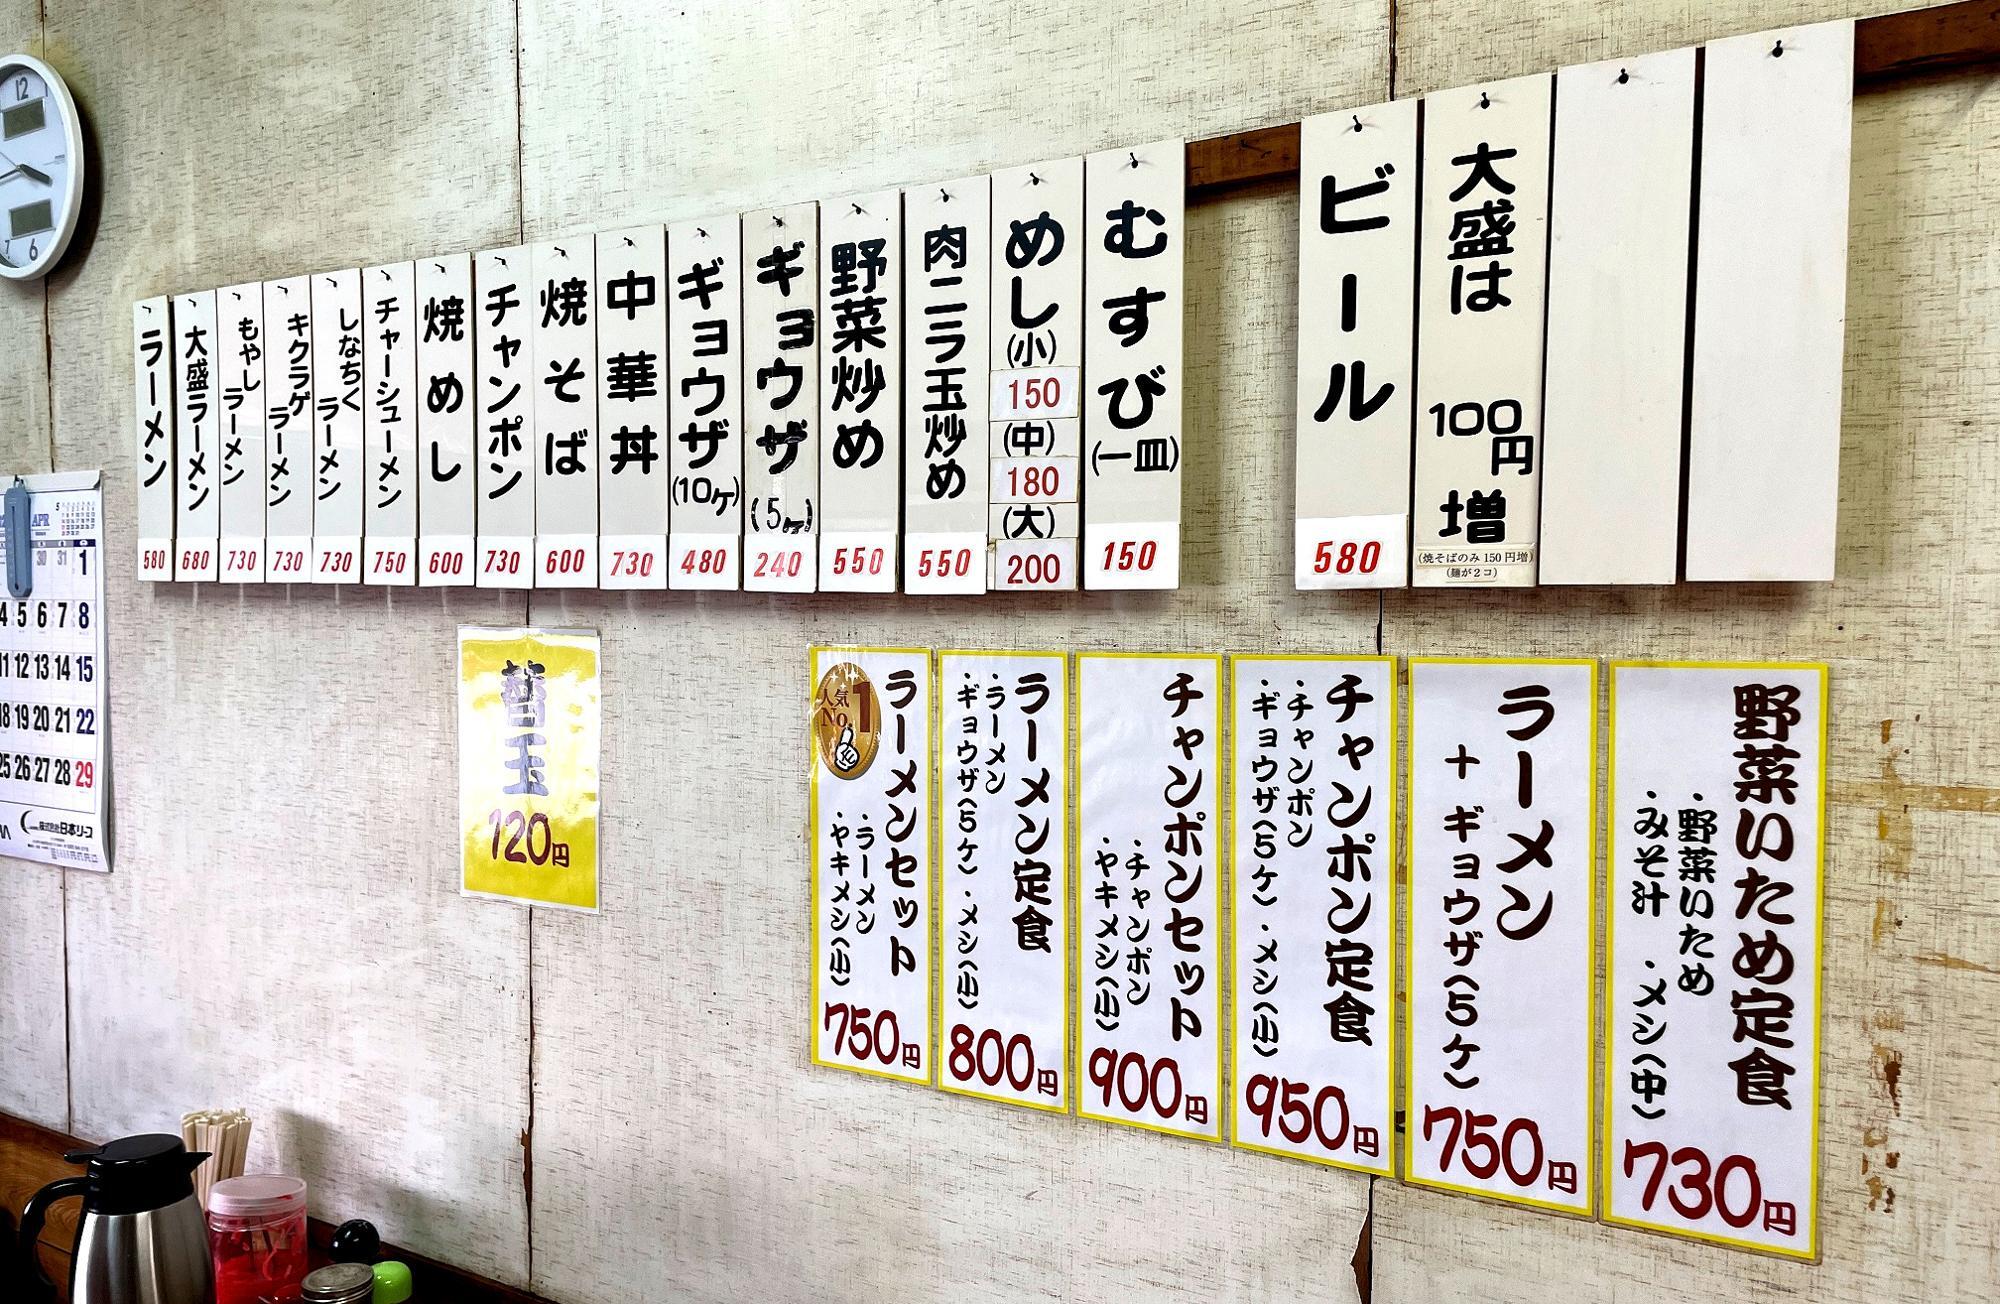 ラーメン
580
大盛ラーメン
680
もやし
ラーメン
730
キクラゲ
ラーメン
730
しなちく
ラーメン
730
チャーシューメン
750
焼めし
600
チャンポン
730
焼そば
600
中華丼
730
ギョウザ
(10ヶ)
480
ギョウザ
(5ヶ)
240
野菜炒め
550
肉ニラ玉炒め
550
めし(小)
150
(中)
180
(大)
200
むすび
(一皿)
150
ビール
580
大盛は 100円増
(焼そばのみ150円増)
(麺が2コ)
替玉
120円
人気
No.1
ラーメンセット
・ラーメン
・ヤキメシ(小)
750円
ラーメン定食
・ラーメン
・ギョウザ(5ケ)・メシ(小)
800円
チャンポンセット
・チャンポン
・ヤキメシ(小)
900円
チャンポン定食
・チャンポン
・ギョウザ(5ケ)・メシ(小)
950円
ラーメン
+ギョウザ(5ケ)
750円
野菜いため定食
・野菜いため
・みそ汁 ・メシ(中)
730円
12
6
APR
5
30 31 1
4 5 6 7 8
11 12 13 14 15
18 19 20 21 22
25 26 27 28 29
株式会社日本リース